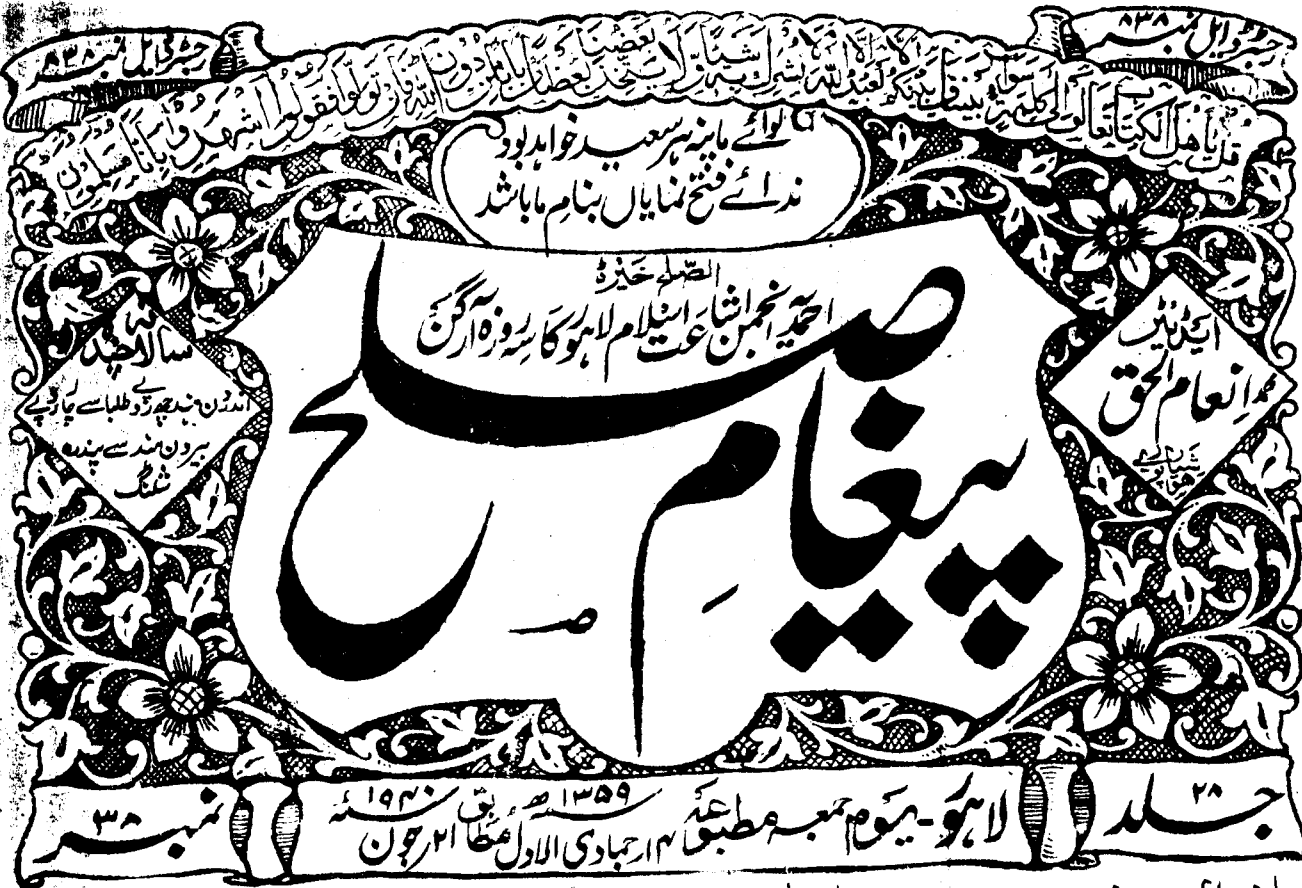 رجسٹرڈ ایل نمبر ۸۳۸
رجسٹرڈ ایل نمبر ۸۳۸
قل یا اھل الکتاب تعالوا الی کلمۃ سواء بیننا و بینکم الا نعبد الا اللہ ولا نشرک بہ شیئا ولا یتخذ بعضنا بعضا اربابا من دون اللہ فان تولوا فقولوا اشھدوا بانا مسلمون
لوائے ما پنہ ہر سعید خواہد بود
ندائے فتح نمایاں بنام ما باشد
الصلح خیر
احمدیہ انجمن اشاعت اسلام لاہور کا سہ روزہ آرگن
پیغام صلح
ایڈیٹر
محمد انعام الحق
سالانہ چندہ
اندرون ہند چھ روپے طلبا سے چار روپے
بیرون ہند سے پندرہ
شلنگ
جلد ۲۸
لاہور - یوم جمعہ مطبوعہ ۱۴ جمادی الاول ۱۳۵۹ھ مطابق ۲۱ جون ۱۹۴۰ء
نمبر ۳۸